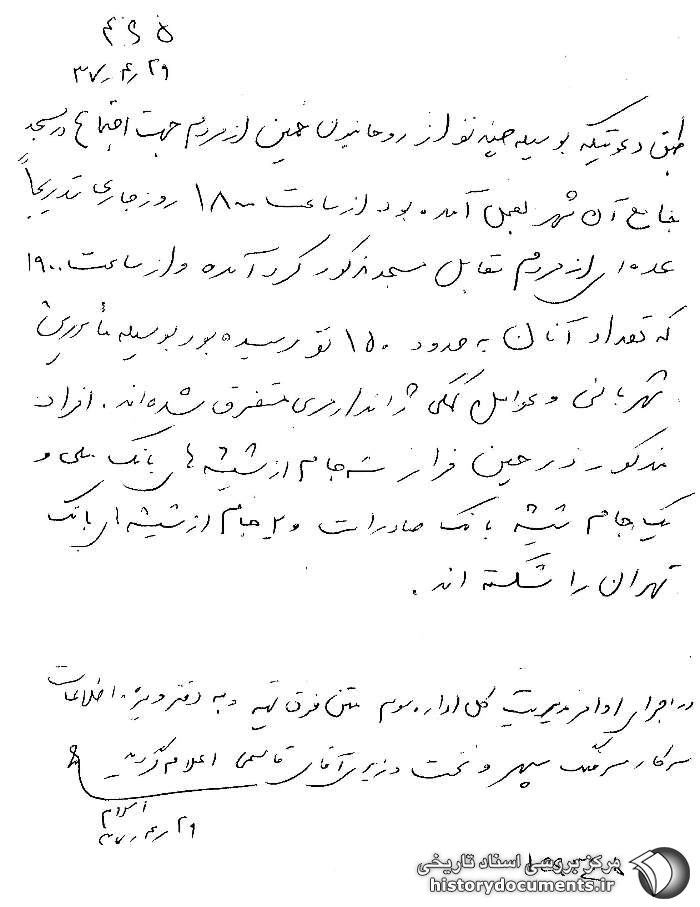 ۳۷٫۴٫۲۹
طبق دعوتیکه بوسیله چند نفر از روحانیون خمین از مردم جهت اجتماع در مسجد
جامع آن شهر بعمل آمده بود از ساعت ۱۸۰۰ روز جاری تدریجاً
عده‌ای از مردم مقابل مسجد مذکور گرد آمده و از ساعت ۱۹۰۰
که تعداد آنان به حدود ۱۵۰ نفر رسیده بود بوسیله مأمورین
شهربانی و عوامل کمکی ژاندارمری متفرق شده‌اند. افراد
مذکور در حین فرار سه جام از شیشه های بانک ملی و
یک جام شیشه بانک صادرات و جام از شیشه های بانک
تهران را شکسته اند.
در اجرای اوامر مدیریت کل اداره سوم متن فوق تهیه و به دفتر ویژه اطلاعات
سرکار سرهنگ سپهر و نخست وزیری آقای قاسمی اعلام گردید
۳۷٫۴٫۲۹
مرکز بررسی اسناد تاریخی
historydocuments.ir